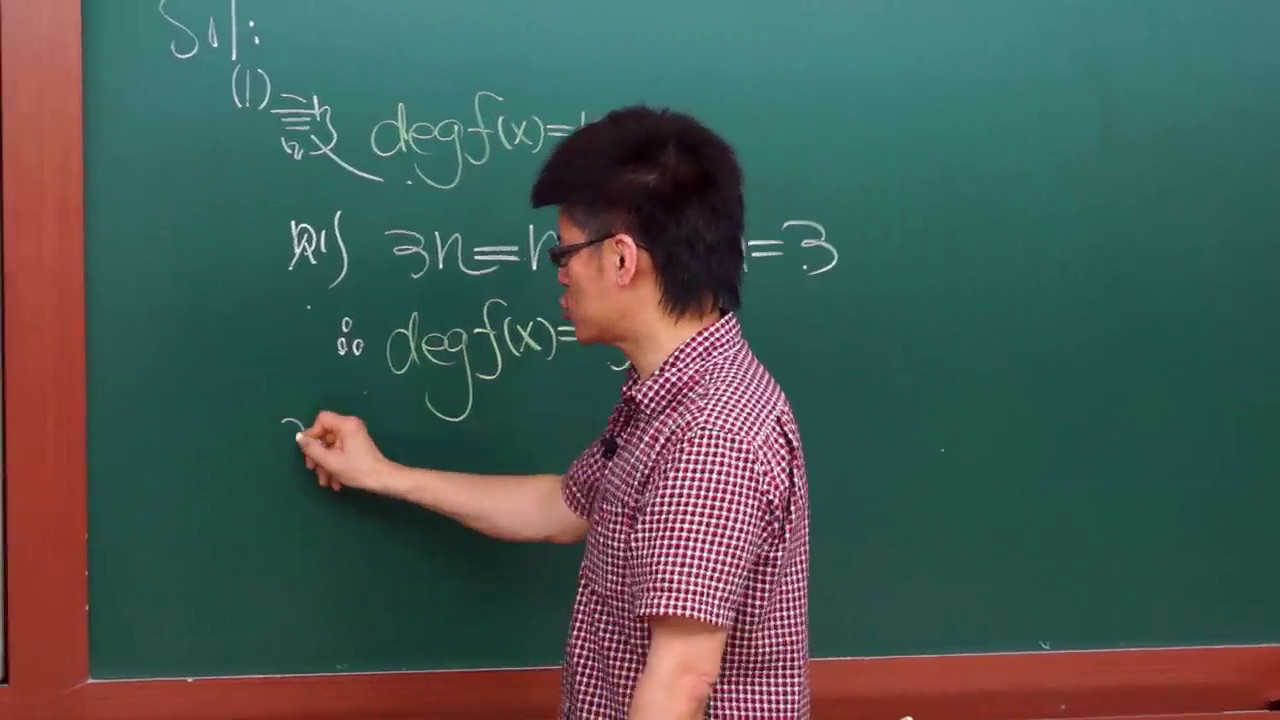 Sol:
(1) 設 deg f(x)=
則 3n=n =3
∴ deg f(x)=